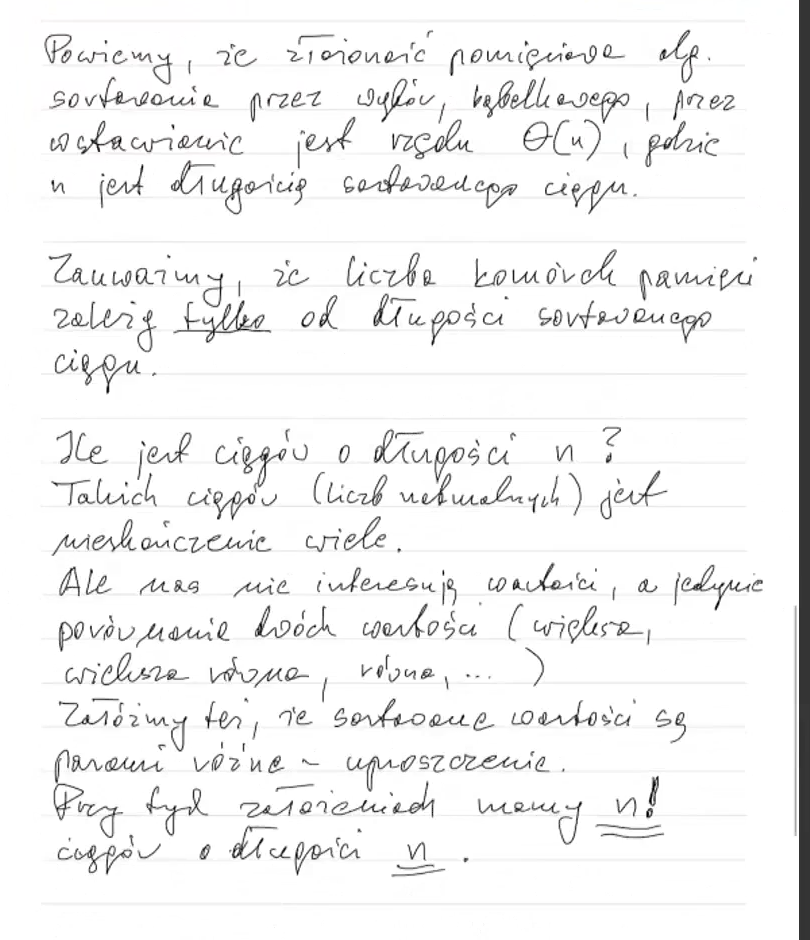 Powiemy, że złożoność pamięciowa alg.
sortowania przez wybór, bąbelkowego, przez
wstawianie jest rzędu Θ(n), gdzie
n jest długością sortowanego ciągu.
Zauważmy, że liczba komórek pamięci
zależy tylko od długości sortowanego
ciągu.
Ile jest ciągów o długości n?
Takich ciągów (liczb naturalnych) jest
nieskończenie wiele.
Ale nas nie interesują wartości, a jedynie
porównanie dwóch wartości (większa,
większa równa, równa, ... )
Załóżmy też, że sortowane wartości są
parami różne - uproszczenie.
Przy tych założeniach mamy n!
ciągów o długości n.